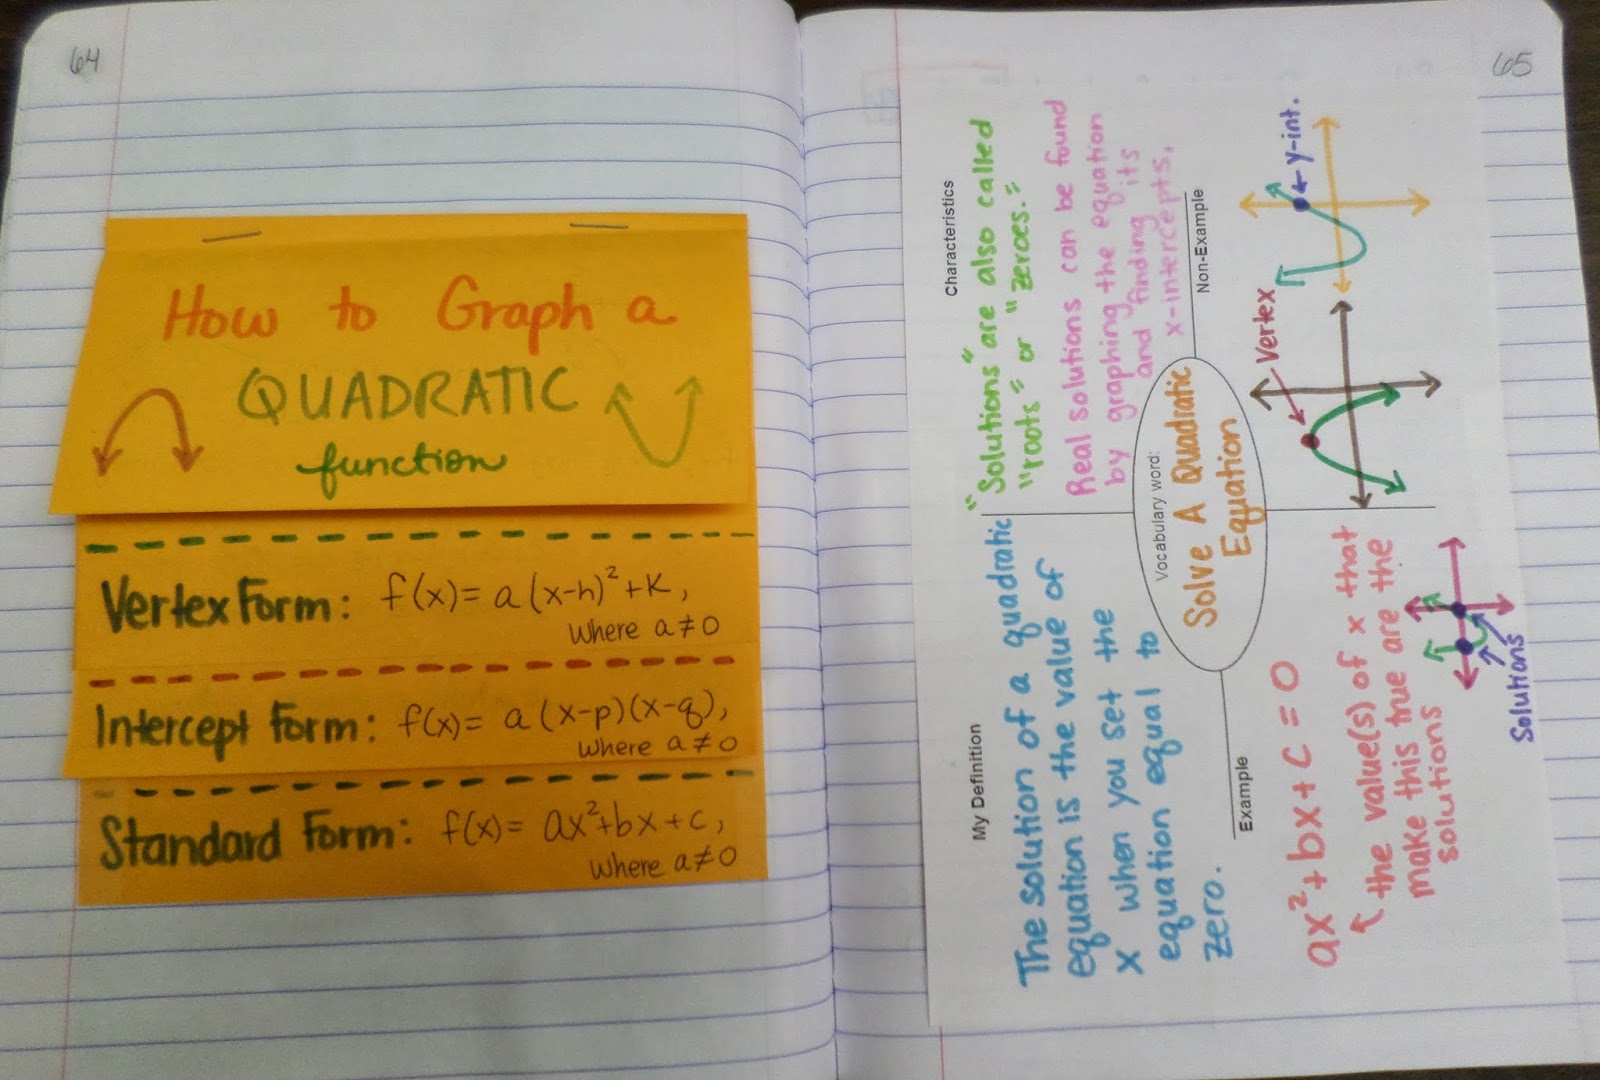 64
How to Graph a
QUADRATIC
function
Vertex Form: f(x)= a(x-h)²+K,
where a≠0
Intercept Form: f(x)= a(x-p)(x-q),
where a≠0
Standard Form: f(x)= ax²+bx+c,
where a≠0
65
My Definition
The solution of a quadratic
equation is the value of
x when you set the
equation equal to
zero.
Characteristics
"Solutions" are also called
"roots" or "zeroes."
Real solutions can be found
by graphing the equation
and finding its
x-intercepts.
Vocabulary word:
Solve A Quadratic
Equation
Example
ax²+bx+c=0
the value(s) of x that
make this true are the
solutions
Solutions
Non-Example
Vertex
y-int.